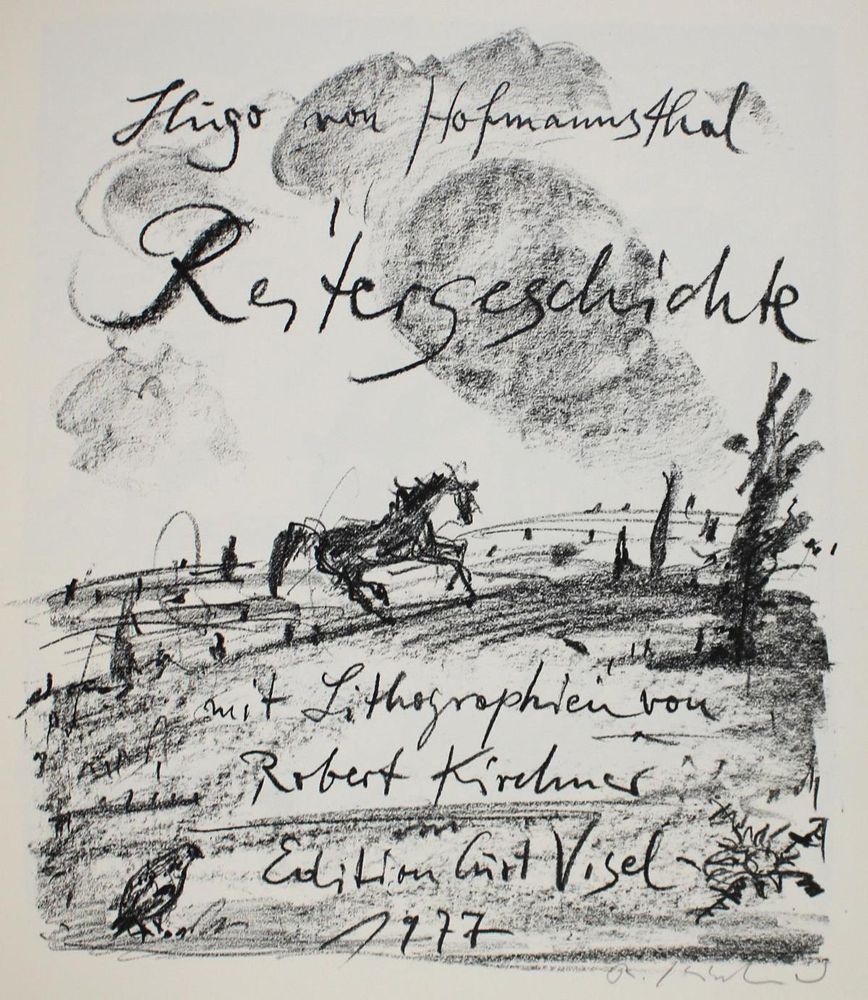 Hugo von Hofmannsthal
Reitergeschichte
mit Lithographien von
Robert Kirchner
Edition Curt Visel
1977